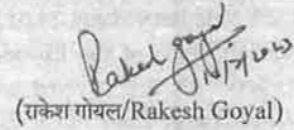 Rakesh Goyal
(राकेश गोयल/Rakesh Goyal)